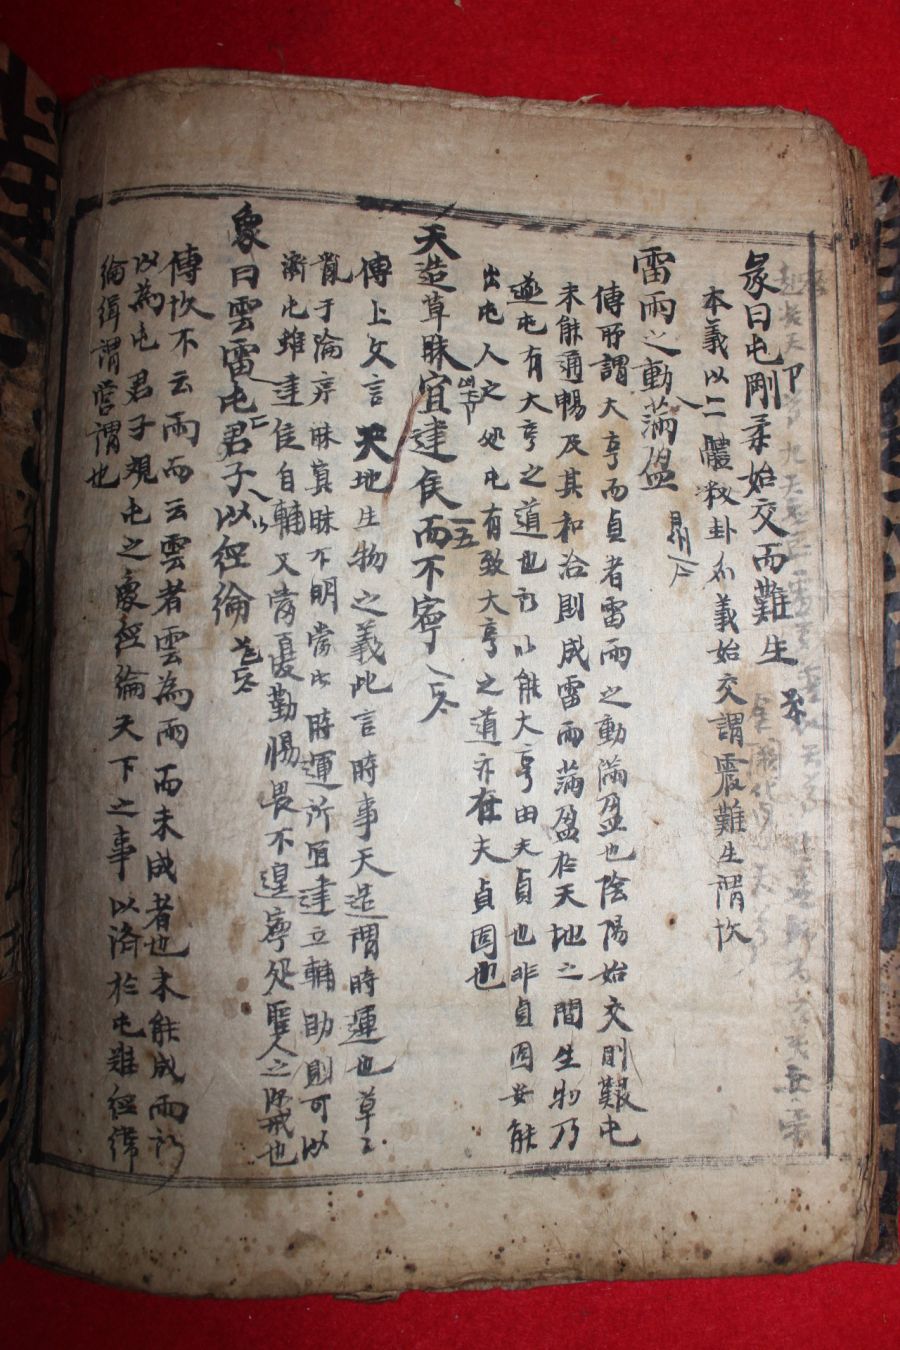 彖曰屯剛柔始交而難生
本義以二體釋卦名義始交謂震難生謂坎
雷雨之動滿盈
傳所謂大亨而貞者雷雨之動滿盈也陰陽始交則艱屯
未能通暢及其和洽則成雷雨滿盈於天地之間生物乃
遂屯有大亨之道也所以能大亨由夫貞也非貞固安能
出屯人之処屯有致大亨之道亦在夫貞固也
天造草昧宜建侯而不寧
傳上文言天地生物之義此言時事天造謂時運也草草
亂于淪亦昧冥昧不明當此時運所宜建立輔助則可以
濟屯雖建侯自輔又當憂勤惕畏不遑寧処聖人之深戒也
象曰雲雷屯君子以經綸
傳坎不云雨而云雲者雲為雨而未成者也未能成雨所
以為屯君子覌屯之象經綸天下之事以濟於屯难經緯
綸緝謂營謂也